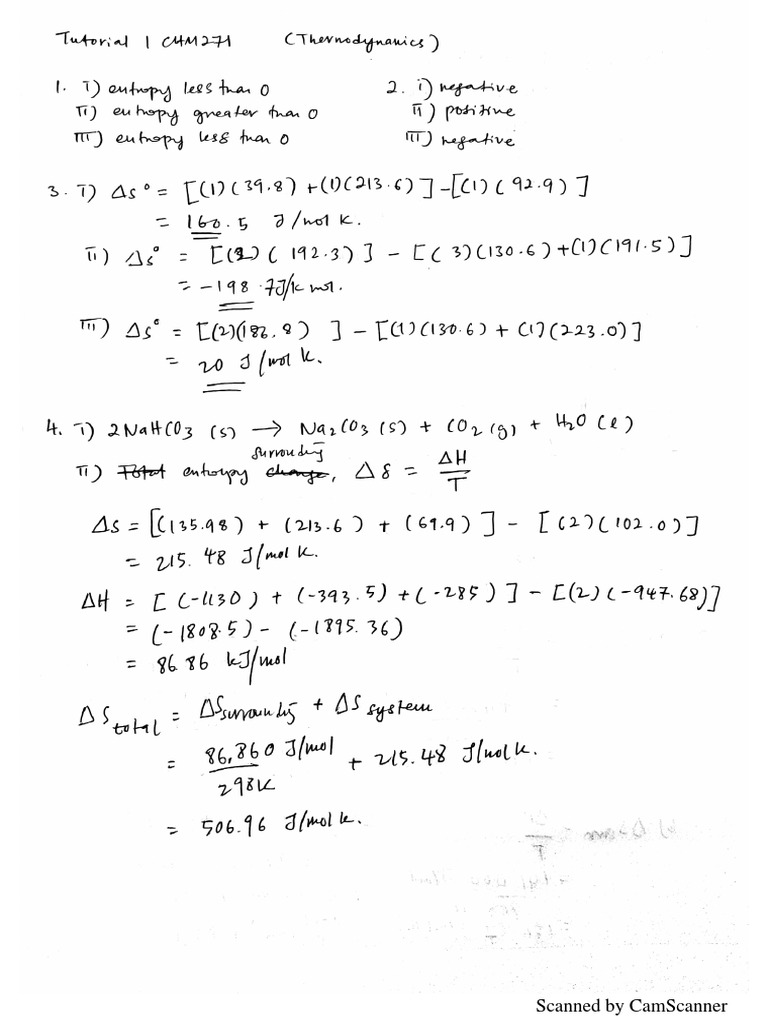 Tutorial 1 CHM271 (Thermodynamics)
1. I) entropy less than 0 2. i) negative
II) entropy greater than 0 II) positive
III) entropy less than 0 III) negative
3. I) ΔS° = [(1)(39.8) + (1)(213.6)] - [(1)(92.9)]
= 160.5 J/mol K.
II) ΔS° = [(2)(192.3)] - [(3)(130.6) + (1)(191.5)]
= -198.7 J/K mol.
III) ΔS° = [(2)(186.8)] - [(1)(130.6) + (1)(223.0)]
= 20 J/mol K.
4. I) 2NaHCO3 (s) → Na2CO3 (s) + CO2 (g) + H2O (l)
surrounding
II) Total entropy change, ΔS = ΔH/T
ΔS = [(135.98) + (213.6) + (69.9)] - [(2)(102.0)]
= 215.48 J/mol K.
ΔH = [(-1130) + (-393.5) + (-285)] - [(2)(-947.68)]
= (-1808.5) - (-1895.36)
= 86.86 kJ/mol
ΔS total = ΔS surrounding + ΔS system
= 86,860 J/mol / 298K + 215.48 J/mol K.
= 506.96 J/mol K.
Scanned by CamScanner